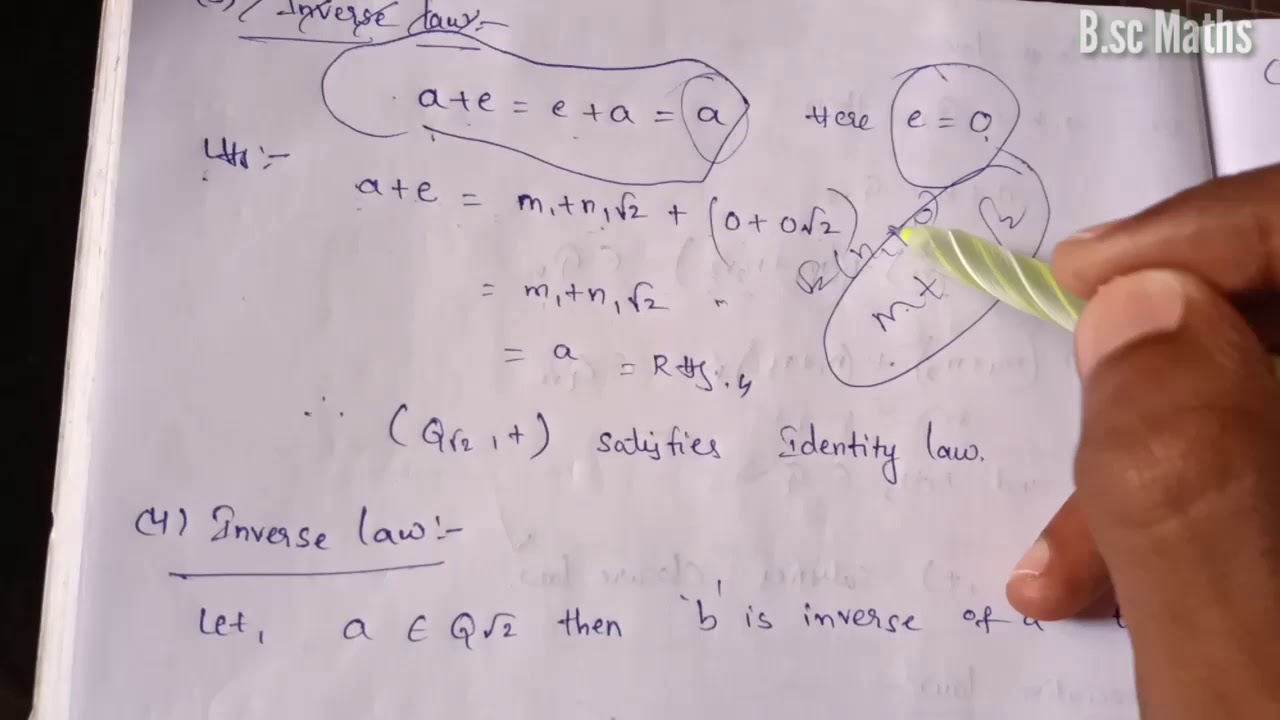 B.sc Maths
Inverse law:-
a+e = e+a = a Here e = 0
LHS:-
a+e = m₁+n₁√2 + (0+0√2)
= m₁+n₁√2
= a = RHS.
∴ (Q√2, +) satisfies Identity law.
(4) Inverse law:-
Let, a ∈ Q√2 then 'b' is inverse of a